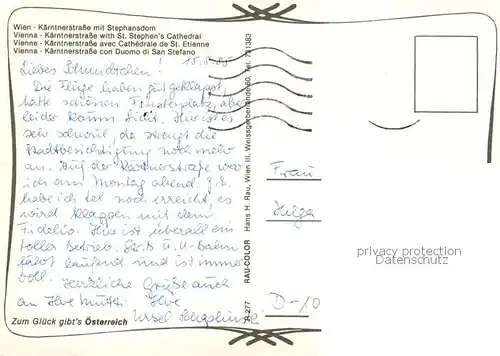 Wien - Kärntnerstraße mit Stephansdom
Vienna - Kärntnerstraße with St. Stephen's Cathedral
Vienne - Kärntnerstraße avec Cathédrale de St. Etienne
Vienna - Kärntnerstraße con Duomo di San Stefano
15.8.85
Liebes
Die Flüge haben gut geklappt,
hatte schönen Fensterplatz, aber
leider kaum Sicht. Hier ist es
sehr schwül, da strengt die
Stadtbesichtigung noch mehr
an. Auf der Kärtnerstraße war
ich am Montag abend.
habe ich tel noch erreicht, es
wird klappen mit dem
Fidelio. Hier ist überall ein
toller Betrieb. u. U-Bahn
fährt laufend und ist immer
voll. Herzliche Grüße auch
an Ihre Mutti. Ihre
Ursel
Zum Glück gibt's Österreich
R-277 RAU-COLOR Hans H. Rau, Wien III, Weissgerberlände 50, Tel. 731383
Frau
Helga
privacy protection
Datenschutz
D-10